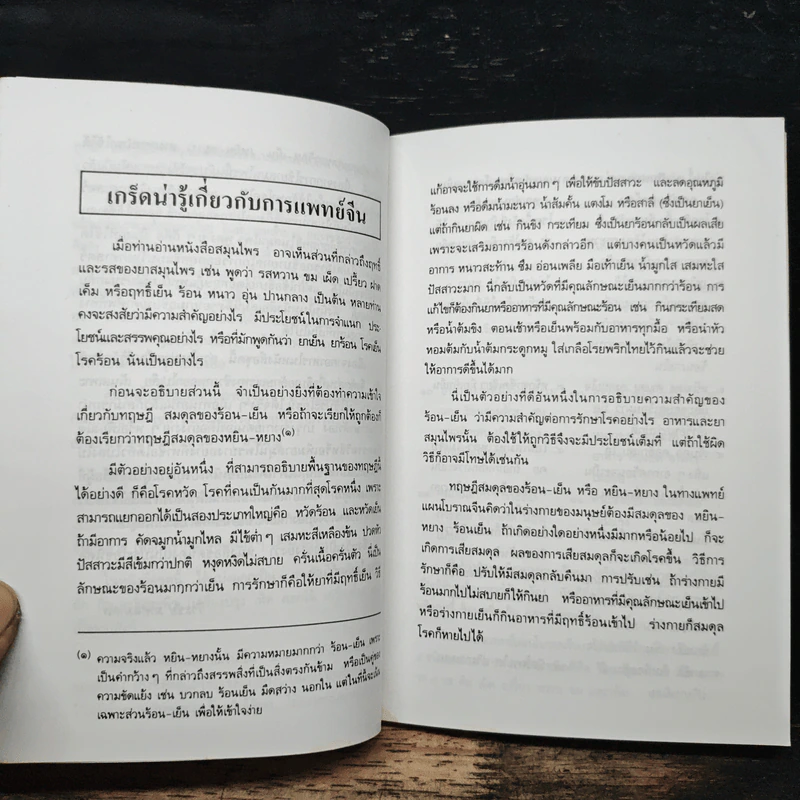 เกร็ดน่ารู้เกี่ยวกับการแพทย์จีน
เมื่อท่านอ่านหนังสือสมุนไพร อาจเห็นส่วนที่กล่าวถึงฤทธิ์
และรสของยาสมุนไพร เช่น พูดว่า รสหวาน ขม เผ็ด เปรี้ยว ฝาด
เค็ม หรือฤทธิ์เย็น ร้อน หนาว อุ่น ปานกลาง เป็นต้น หลายท่าน
คงจะสงสัยว่ามีความสำคัญอย่างไร มีประโยชน์ในการจำแนก ประ
โยชน์และสรรพคุณอย่างไร หรือที่มักพูดกันว่า ยาเย็น ยาร้อน โรคเย็น
โรคร้อน นั่นเป็นอย่างไร
ก่อนจะอธิบายส่วนนี้ จำเป็นอย่างยิ่งที่ต้องทำความเข้าใจ
เกี่ยวกับทฤษฎี สมดุลของร้อน-เย็น หรือถ้าจะเรียกให้ถูกต้องก็
ต้องเรียกว่าทฤษฎีสมดุลของหยิน-หยาง(๑)
มีตัวอย่างอยู่อันหนึ่ง ที่สามารถอธิบายพื้นฐานของทฤษฎีนี้
ได้อย่างดี ก็คือโรคหวัด โรคที่คนเป็นกันมากที่สุดโรคหนึ่ง เพราะ
สามารถแยกออกได้เป็นสองประเภทใหญ่คือ หวัดร้อน และหวัดเย็น
ถ้ามีอาการ คัดจมูกน้ำมูกไหล มีไข้ต่ำๆ เสมหะสีเหลืองข้น ปวดหัว
ปัสสาวะมีสีเข้มกว่าปกติ หงุดหงิดไม่สบาย ครั่นเนื้อครั่นตัว นี่เป็น
ลักษณะของร้อนมากกว่าเย็น การรักษาก็คือให้ยาที่มีฤทธิ์เย็น วิธี
(๑) ความจริงแล้ว หยิน-หยางนั้น มีความหมายมากกว่า ร้อน-เย็น เพราะ
เป็นคำกว้างๆ ที่กล่าวถึงสรรพสิ่งที่เป็นสิ่งตรงกันข้าม หรือเป็นคู่ของ
ความขัดแย้ง เช่น บวกลบ ร้อนเย็น มืดสว่าง นอกใน แต่ในที่นี้จะเน้น
เฉพาะส่วนร้อน-เย็น เพื่อให้เข้าใจง่าย
แก้อาจจะใช้การดื่มน้ำอุ่นมากๆ เพื่อให้ขับปัสสาวะ และลดอุณหภูมิ
ร้อนลง หรือดื่มน้ำมะนาว น้ำส้มคั้น แตงโม หรือสาลี่ (ซึ่งเป็นยาเย็น)
แต่ถ้ากินยาผิด เช่น กินขิง กระเทียม ซึ่งเป็นยาร้อนกลับเป็นผลเสีย
เพราะจะเสริมอาการร้อนดังกล่าวอีก แต่บางคนเป็นหวัดแล้วมี
อาการ หนาวสะท้าน ซึม อ่อนเพลีย มือเท้าเย็น น้ำมูกใส เสมหะใส
ปัสสาวะมาก นี่กลับเป็นหวัดที่มีคุณลักษณะเย็นมากกว่าร้อน การ
แก้ไขก็ต้องกินยาหรืออาหารที่มีคุณลักษณะร้อน เช่น กินกระเทียมสด
หรือน้ำต้มขิง ตอนเช้าหรือเย็นพร้อมกับอาหารทุกมื้อ หรือนำหัว
หอมต้มกับน้ำต้มกระดูกหมู ใส่เกลือโรยพริกไทยไว้กินแล้วจะช่วย
ให้อาการดีขึ้นได้มาก
นี่เป็นตัวอย่างที่ดีอันหนึ่งในการอธิบายความสำคัญของ
ร้อน-เย็น ว่ามีความสำคัญต่อการรักษาโรคอย่างไร อาหารและยา
สมุนไพรนั้น ต้องใช้ให้ถูกวิธีจึงจะมีประโยชน์เต็มที่ แต่ถ้าใช้ผิด
วิธีก็อาจมีโทษได้เช่นกัน
ทฤษฎีสมดุลของร้อน-เย็น หรือ หยิน-หยาง ในทางแพทย์
แผนโบราณจีนคิดว่าในร่างกายของมนุษย์ต้องมีสมดุลของ หยิน-
หยาง ร้อนเย็น ถ้าเกิดอย่างใดอย่างหนึ่งมีมากหรือน้อยไป ก็จะ
เกิดการเสียสมดุล ผลของการเสียสมดุลก็จะเกิดโรคขึ้น วิธีการ
รักษาก็คือ ปรับให้มีสมดุลกลับคืนมา การปรับเช่น ถ้าร่างกายมี
ร้อนมากไปไม่สบายก็ให้กินยา หรืออาหารที่มีคุณลักษณะเย็นเข้าไป
หรือร่างกายเย็นก็กินอาหารที่มีฤทธิ์ร้อนเข้าไป ร่างกายก็สมดุล
โรคก็หายไปได้